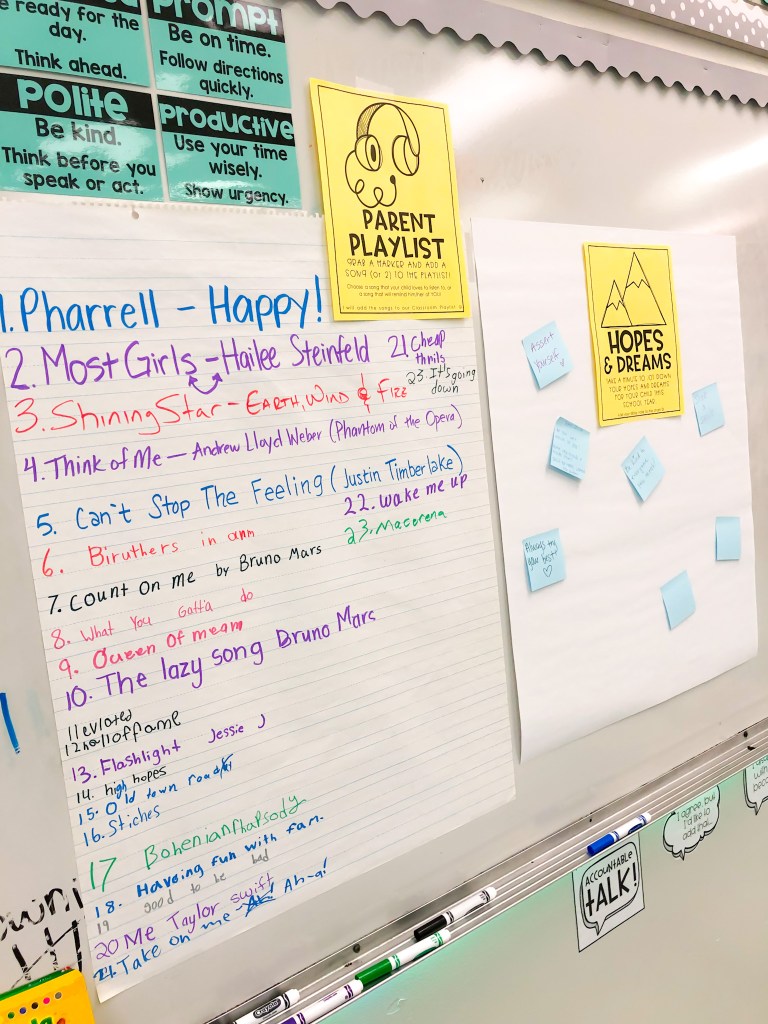 e ready for the
day.
Think ahead.
Prompt
Be on time.
Follow directions
quickly.
Polite
Be kind.
Think before you
speak or act.
Productive
Use your time
wisely.
Show urgency.
PARENT
PLAYLIST
GRAB A MARKER AND ADD A
SONG (OR 2) TO THE PLAYLIST!
Choose a song that your child loves to listen to, or
a song that will remind him/her of YOU!
I will add the songs to our Classroom Playlist.
1. Pharrell - Happy!
2. Most Girls - Hailee Steinfeld
21. Cheap
thrils
3. Shining Star - EARTH, WIND & FIZE
23. It's going
down
4. Think of Me - Andrew Lloyd Weber (Phantom of the Opera)
5. Can't Stop The Feeling (Justin Timberlake)
22. wake me up
6. Biruthers in arm
23. Macerena
7. Count on me by Bruno Mars
8. What You Gatta do
9. Queen of mean
10. The lazy song Bruno Mars
11 evloted
12 hall of fame
13. Flashlight Jessie J
14. high hopes
15. Old town road
16. Stiches
17 Bohenian Rhapsody
18. Haveing fun with fam.
19 good to be bad
20 Me Taylor swift
Take on me Ah-a!
HOPES
& DREAMS
TAKE A MINUTE TO JOT DOWN
YOUR HOPES AND DREAMS
FOR YOUR CHILD THIS
SCHOOL YEAR
Assert
yourself
Always try
your best!
ACCOUNTABLE
TALK!
I agree, but
I'd like to
add that...
Crayola